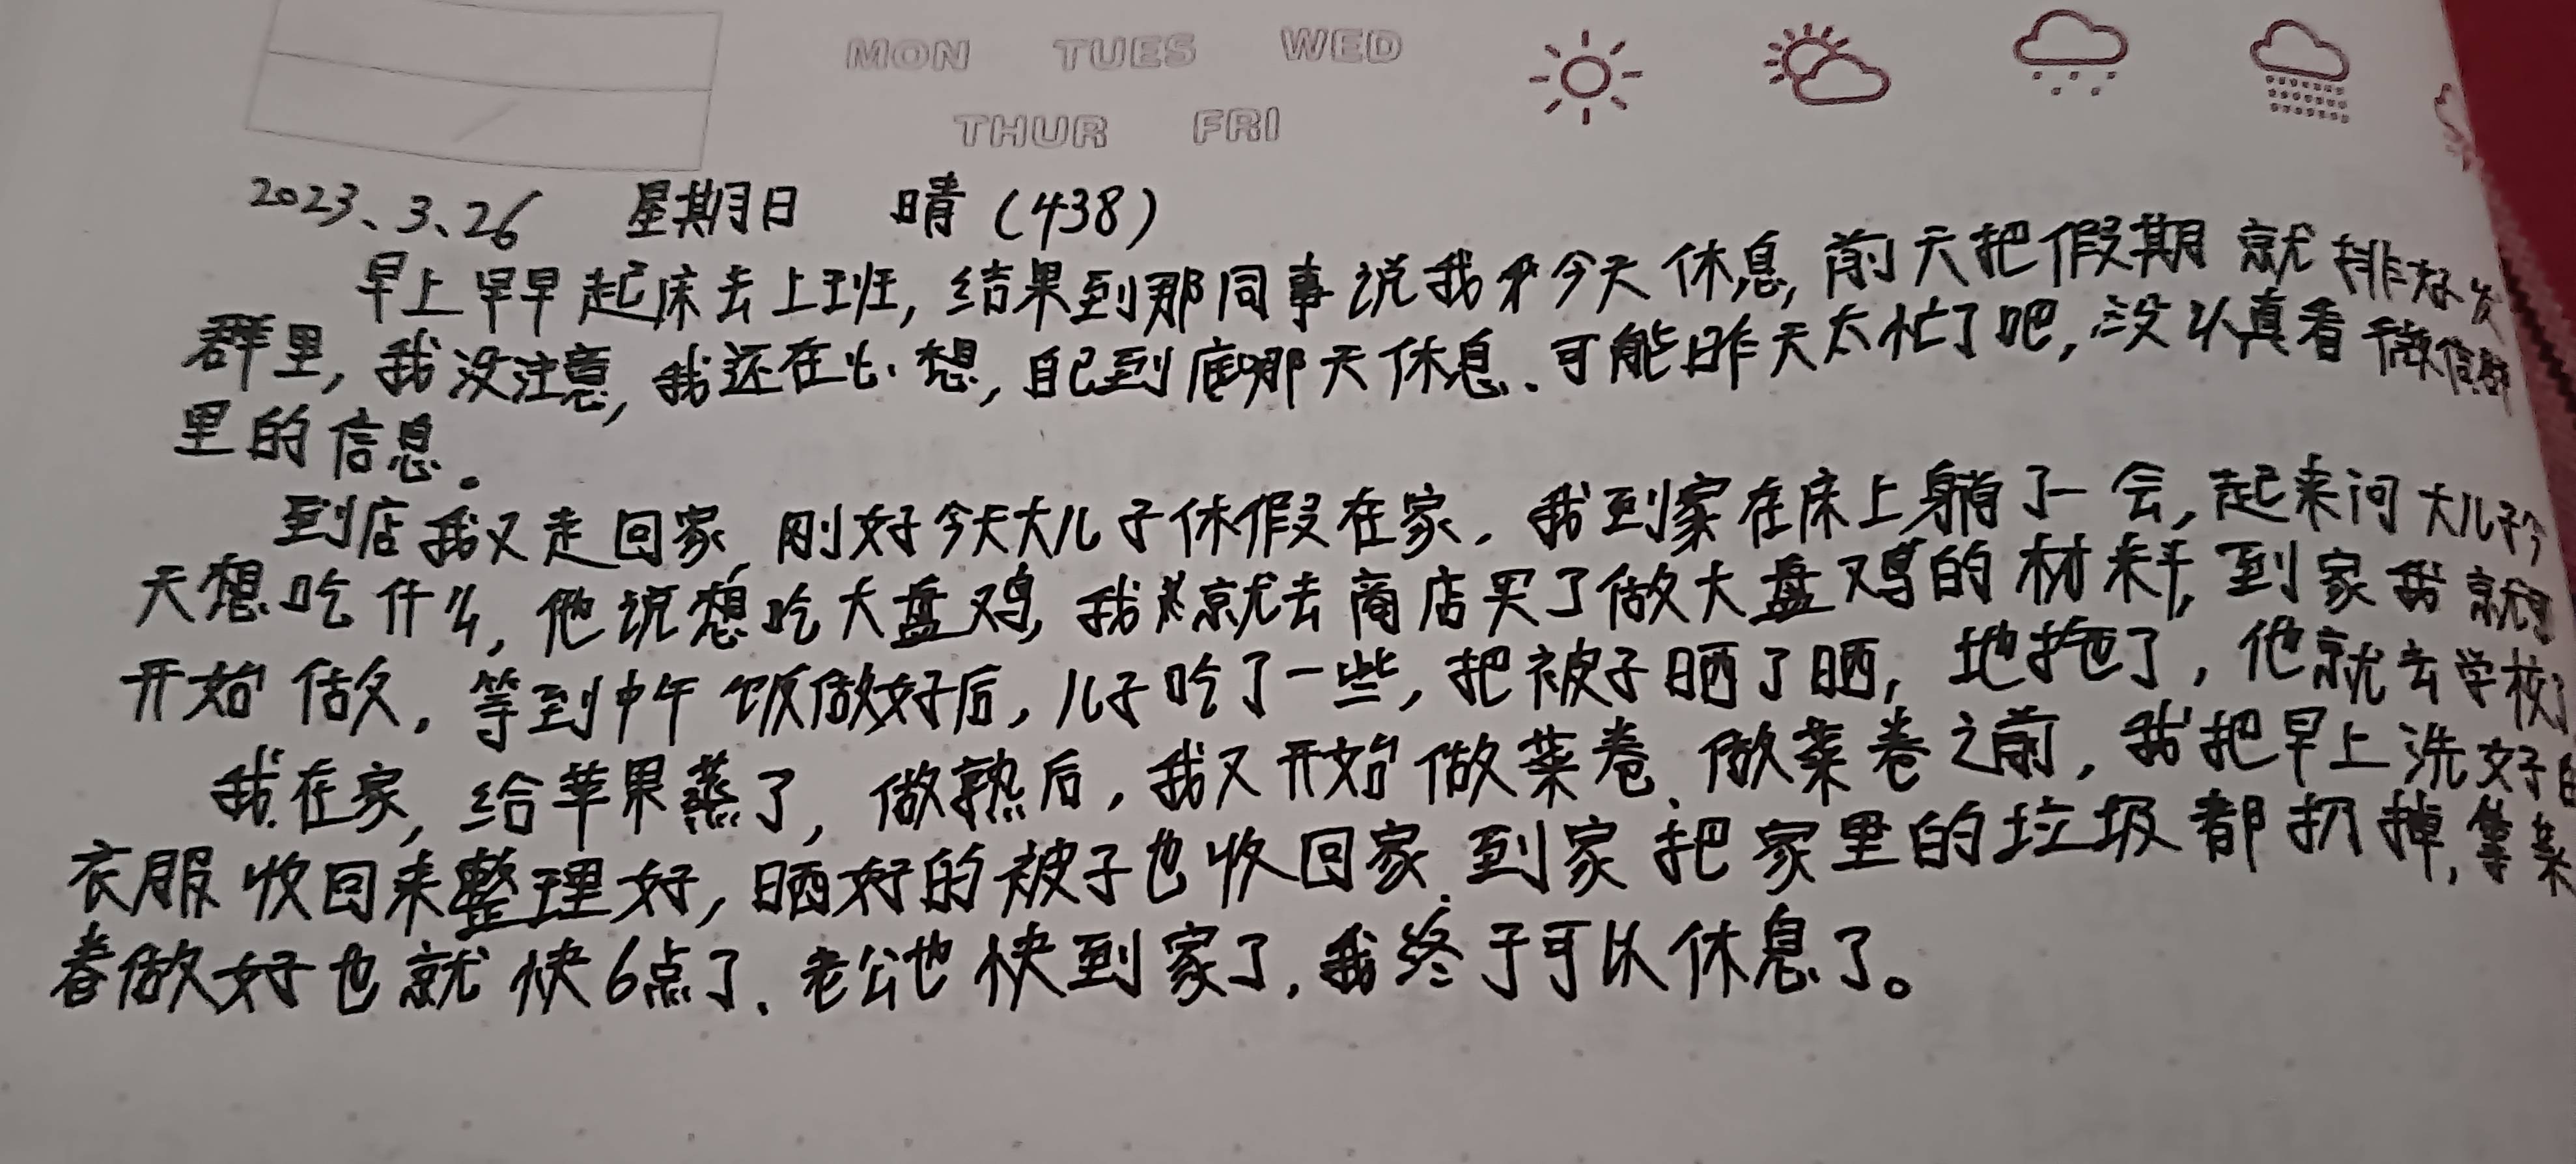 MON TUES WED
THUR FRI
2023、3、26 星期日 晴（438）
早上早早起床去上班，结果到那同事说我才今天休息，前天把假期就排好发
群里，我没注意，我还在心想，自己到底哪天休息、可能昨天太忙了吧，没认真看微信群
里的信息。
到店我又走回家，刚好今天大儿子休假在家．我到家在床上躺了一会，起来问大儿子今
天想吃什么，他说想吃大盘鸡，我就去商店买了做大盘鸡的材料，到家我就
开始做．等到中午饭做好后，儿子吃了一些，把被子晒了晒，地拖了，他就去学校了
我在家，给苹果蒸了，做熟后，我又开始做菜卷、做菜卷之前，我把早上洗好的
衣服收回来整理好，晒好的被子也收回家．到家把家里的垃圾都扔掉，等菜
卷做好也就快6点了、老公也快到家了，我终于可以休息了。